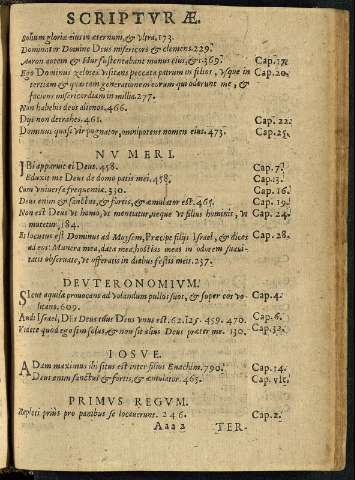 SCRIPTVRÆ.
solium gloriæ eius in æternum, & vltra, 173.
Dominator Domine Deus misericors & clemens. 229.
Aaron autem & Hur sustentabant manus eius, & c. 369. Cap. 17.
Ego Dominus zelotes visitans peccata patrum in filios, vsque in Cap. 20.
tertiam & quartam generationem eorum qui oderunt me, &
faciens misericordiam in millia. 277.
Non habebis deos alienos. 466.
Dijs non detrahes. 461. Cap. 22.
Dominus quasi vir pugnator, omnipotens nomen eius. 473. Cap. 25.
NVMERI.
IBi apparuit ei Deus. 458. Cap. 7.
Eduxit me Deus de domo patis mei. 458. Cap. 13.
Cum vniuersa frequentia. 330. Cap. 16.
Deus enim & sanctus, & fortis, & æmulator est. 465. Cap. 19.
Non est Deus vt homo, vt mentiatur, neque vt filius hominis, vt Cap. 24.
mutetur. 184.
Et locutus est Dominus ad Moysem, Præcipe filijs Israel, & dices Cap. 28.
ad eos: Munera mea, data mea, hostias meas in odorem suauitatis
obseruate, vt offeratis in diebus festis meis. 237.
DEVTERONOMIVM.
SIcut aquila prouocans ad volandum pullos suos, & super eos volicans. Cap. 4.
609.
Audi Israel, Dñs Deus tuus Deus vnus est. 62. 125. 459. 470. Cap. 6.
Videte quod ego sim solus, & non sit alius Deus præter me. 130. Cap. 32.
IOSVE.
ADam maximus ibi situs est inter filios Enachim. 790. Cap. 14.
Deus enim sanctus & fortis, & æmulator. 465. Cap. vlt.
PRIMVS REGVM.
Repleti prius pro panibus se locauerunt. 246. Cap. 2.
Aaa 2 TER-